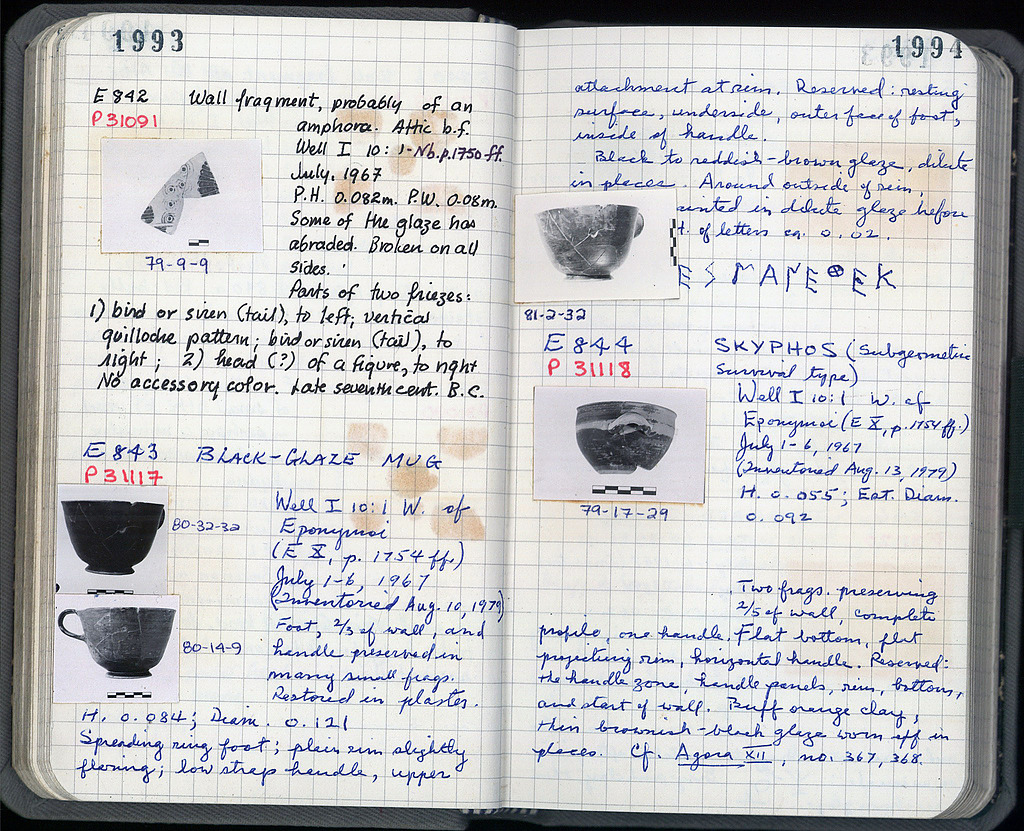 1993
E 842 Wall fragment, probably of an
P 31091
amphora. Attic b.f.
Well I 10:1-Nb.p.1750 ff.
July, 1967
P.H. 0.082m. P.W. 0.08m.
Some of the glaze has
abraded. Broken on all
sides.
79-9-9
Parts of two friezes:
1) bird or siren (tail), to left; vertical
guilloche pattern; bird or siren (tail), to
right; 2) head (?) of a figure, to right
No accessory color. Late seventh cent. B.C.
E 843 BLACK-GLAZE MUG
P 31117
Well I 10:1 W. of
80-32-32
Eponymoi
(E X, p. 1754 ff.)
July 1-6, 1967
(Inventoried Aug. 10, 1979)
Foot, 2/3 of wall, and
handle preserved in
80-14-9
many small frags.
Restored in plaster.
H. 0.084; Diam. 0.121
Spreading ring foot; plain rim slightly
flaring; low strap handle, upper
1994
attachment at rim. Reserved: resting
surface, underside, outer face of foot,
inside of handle.
Black to reddish-brown glaze, dilute
in places. Around outside of rim,
painted in dilute glaze before
t. of letters ca. 0.02.
81-2-32
E 844 SKYPHOS (Subgeometric
P 31118 Survival type)
Well I 10:1 W. of
Eponymoi (E X, p. 1754 ff.)
July 1-6, 1967
(Inventoried Aug. 13, 1979)
H. 0.055; Est. Diam.
0.092
79-17-29
Two frags. preserving
2/5 of wall, complete
profile, one handle. Flat bottom, flat
projecting rim, horizontal handle. Reserved:
the handle zone, handle panels, rim, bottom,
and start of wall. Buff orange clay;
thin brownish-black glaze worn off in
places. Cf. Agora XII, no. 367, 368.